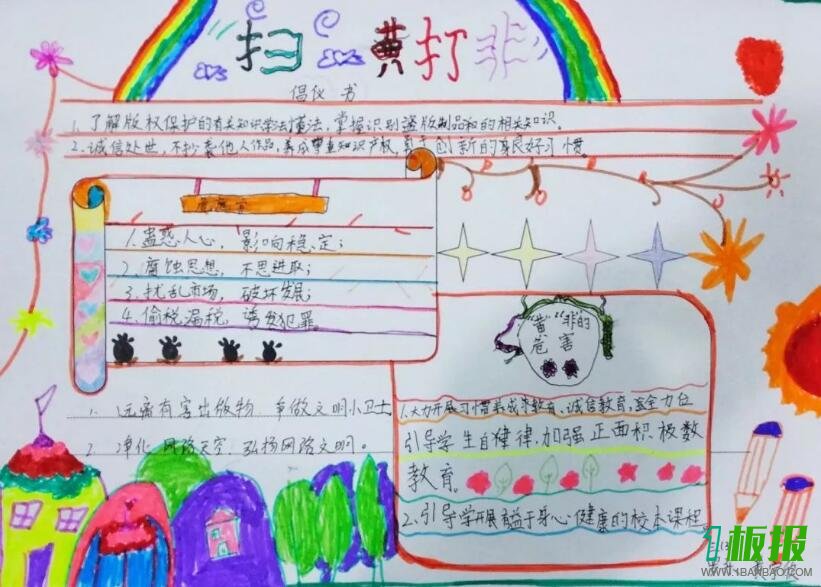 扫黄打非
倡仪书
1. 了解版权保护的有关知识学法懂法，掌握识别盗版制品和的相关知识。
2. 诚信处世，不抄袭他人作品，养成尊重知识产权，勇于创新的良好习惯。
1. 蛊惑人心，影响向稳定；
2. 腐蚀思想，不思进取；
3. 扰乱市场，破坏发展；
4. 偷税漏税，诱发犯罪。
"黄""非"的
危害
1. 远离有害出版物 争做文明小卫士
2. 净化网络天空 弘扬网络文明。
1. 大力开展习惯养成 教育，诚信教育，全 力位
引导学生自律律，加强正面积极数
教育。
2. 引导学开展有益于身心健康的校本课程
板报
WWW.1BANBAO.COM